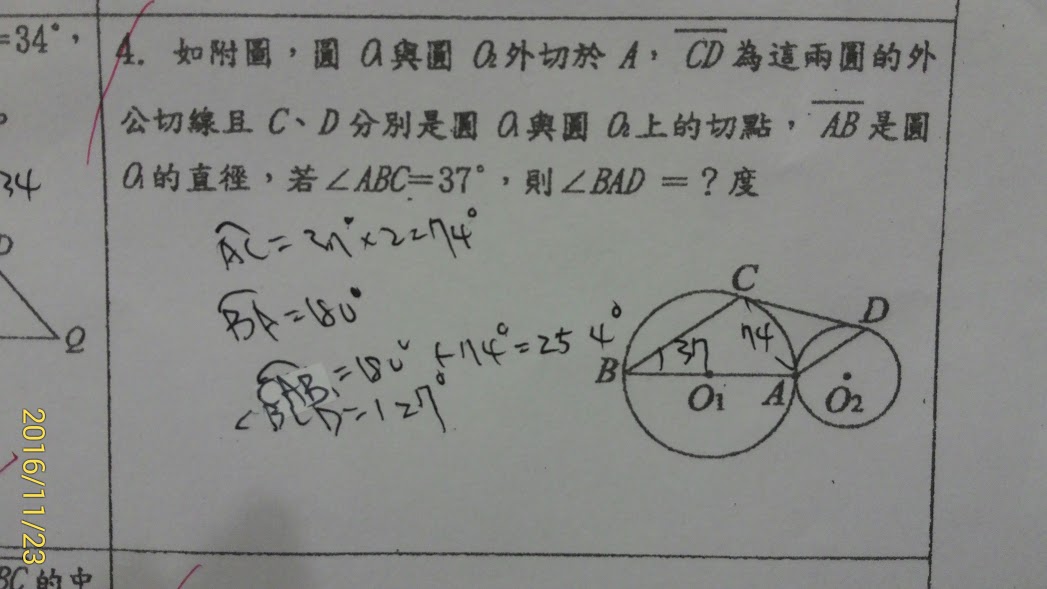 =34°，
4. 如附圖，圓 O₁與圓 O₂外切於 A，CD 為這兩圓的外
公切線且 C、D 分別是圓 O₁與圓 O₂上的切點，AB 是圓
O₁的直徑，若∠ABC=37°，則∠BAD =？度
34
AC = 37° × 2 = 74°
BA = 180°
CAB = 180° + 74° = 254°
∠BCD = 127°
C
D
74
37
B
O₁
A
O₂
Q
2016/11/23
BC 的中